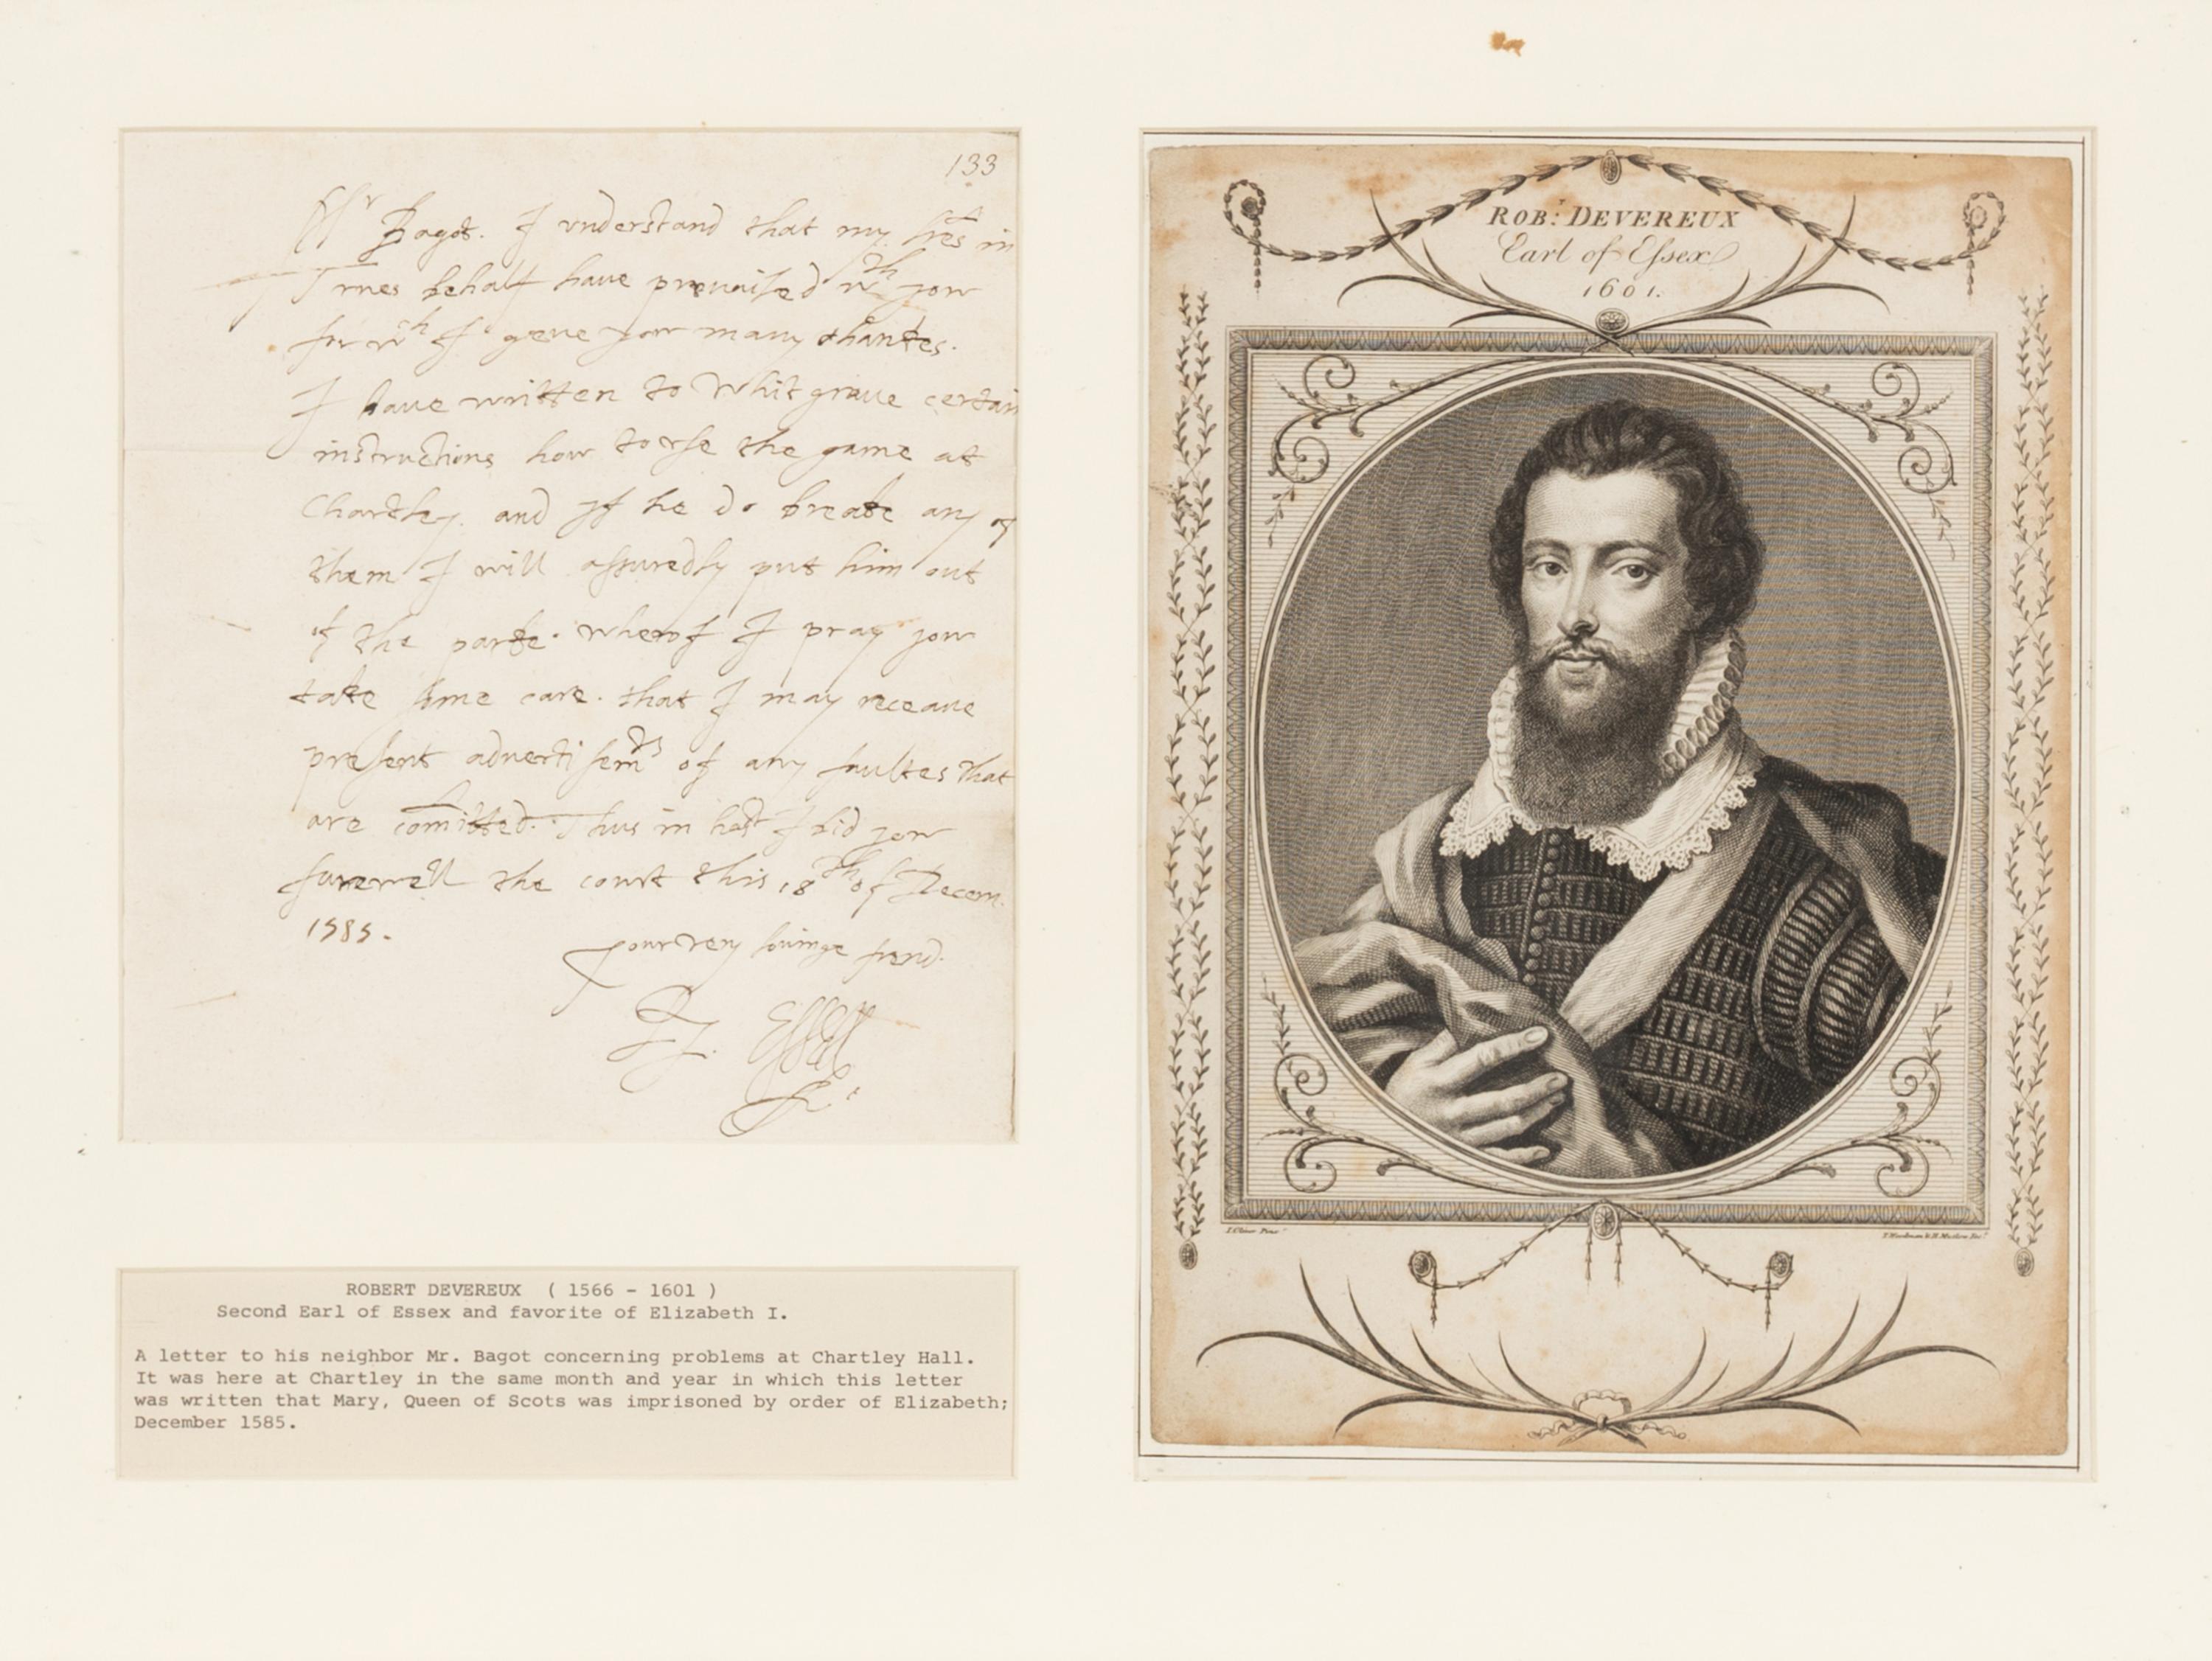 133
Mr Bagot. I vnderstand that my lres in
behalf have prevailed wth yow
for wch I geve yow many thankes.
I have written to Whitgrave certain
instructions how to vse the game at
Chartley. and if he do breake any of
them I will assuredly put him out
of the parke. wherof I pray yow
take some care. that I may receaue
present advertisemts of any faultes that
are comitted. Thus in hast I bid yow
farewell the court this 18th of Decem.
1585.
your very louinge frend.
Essex
ROBERT DEVEREUX ( 1566 - 1601 )
Second Earl of Essex and favorite of Elizabeth I.
A letter to his neighbor Mr. Bagot concerning problems at Chartley Hall.
It was here at Chartley in the same month and year in which this letter
was written that Mary, Queen of Scots was imprisoned by order of Elizabeth;
December 1585.
ROBT: DEVEREUX
Earl of Essex
1601.
I. Oliver Pinxt